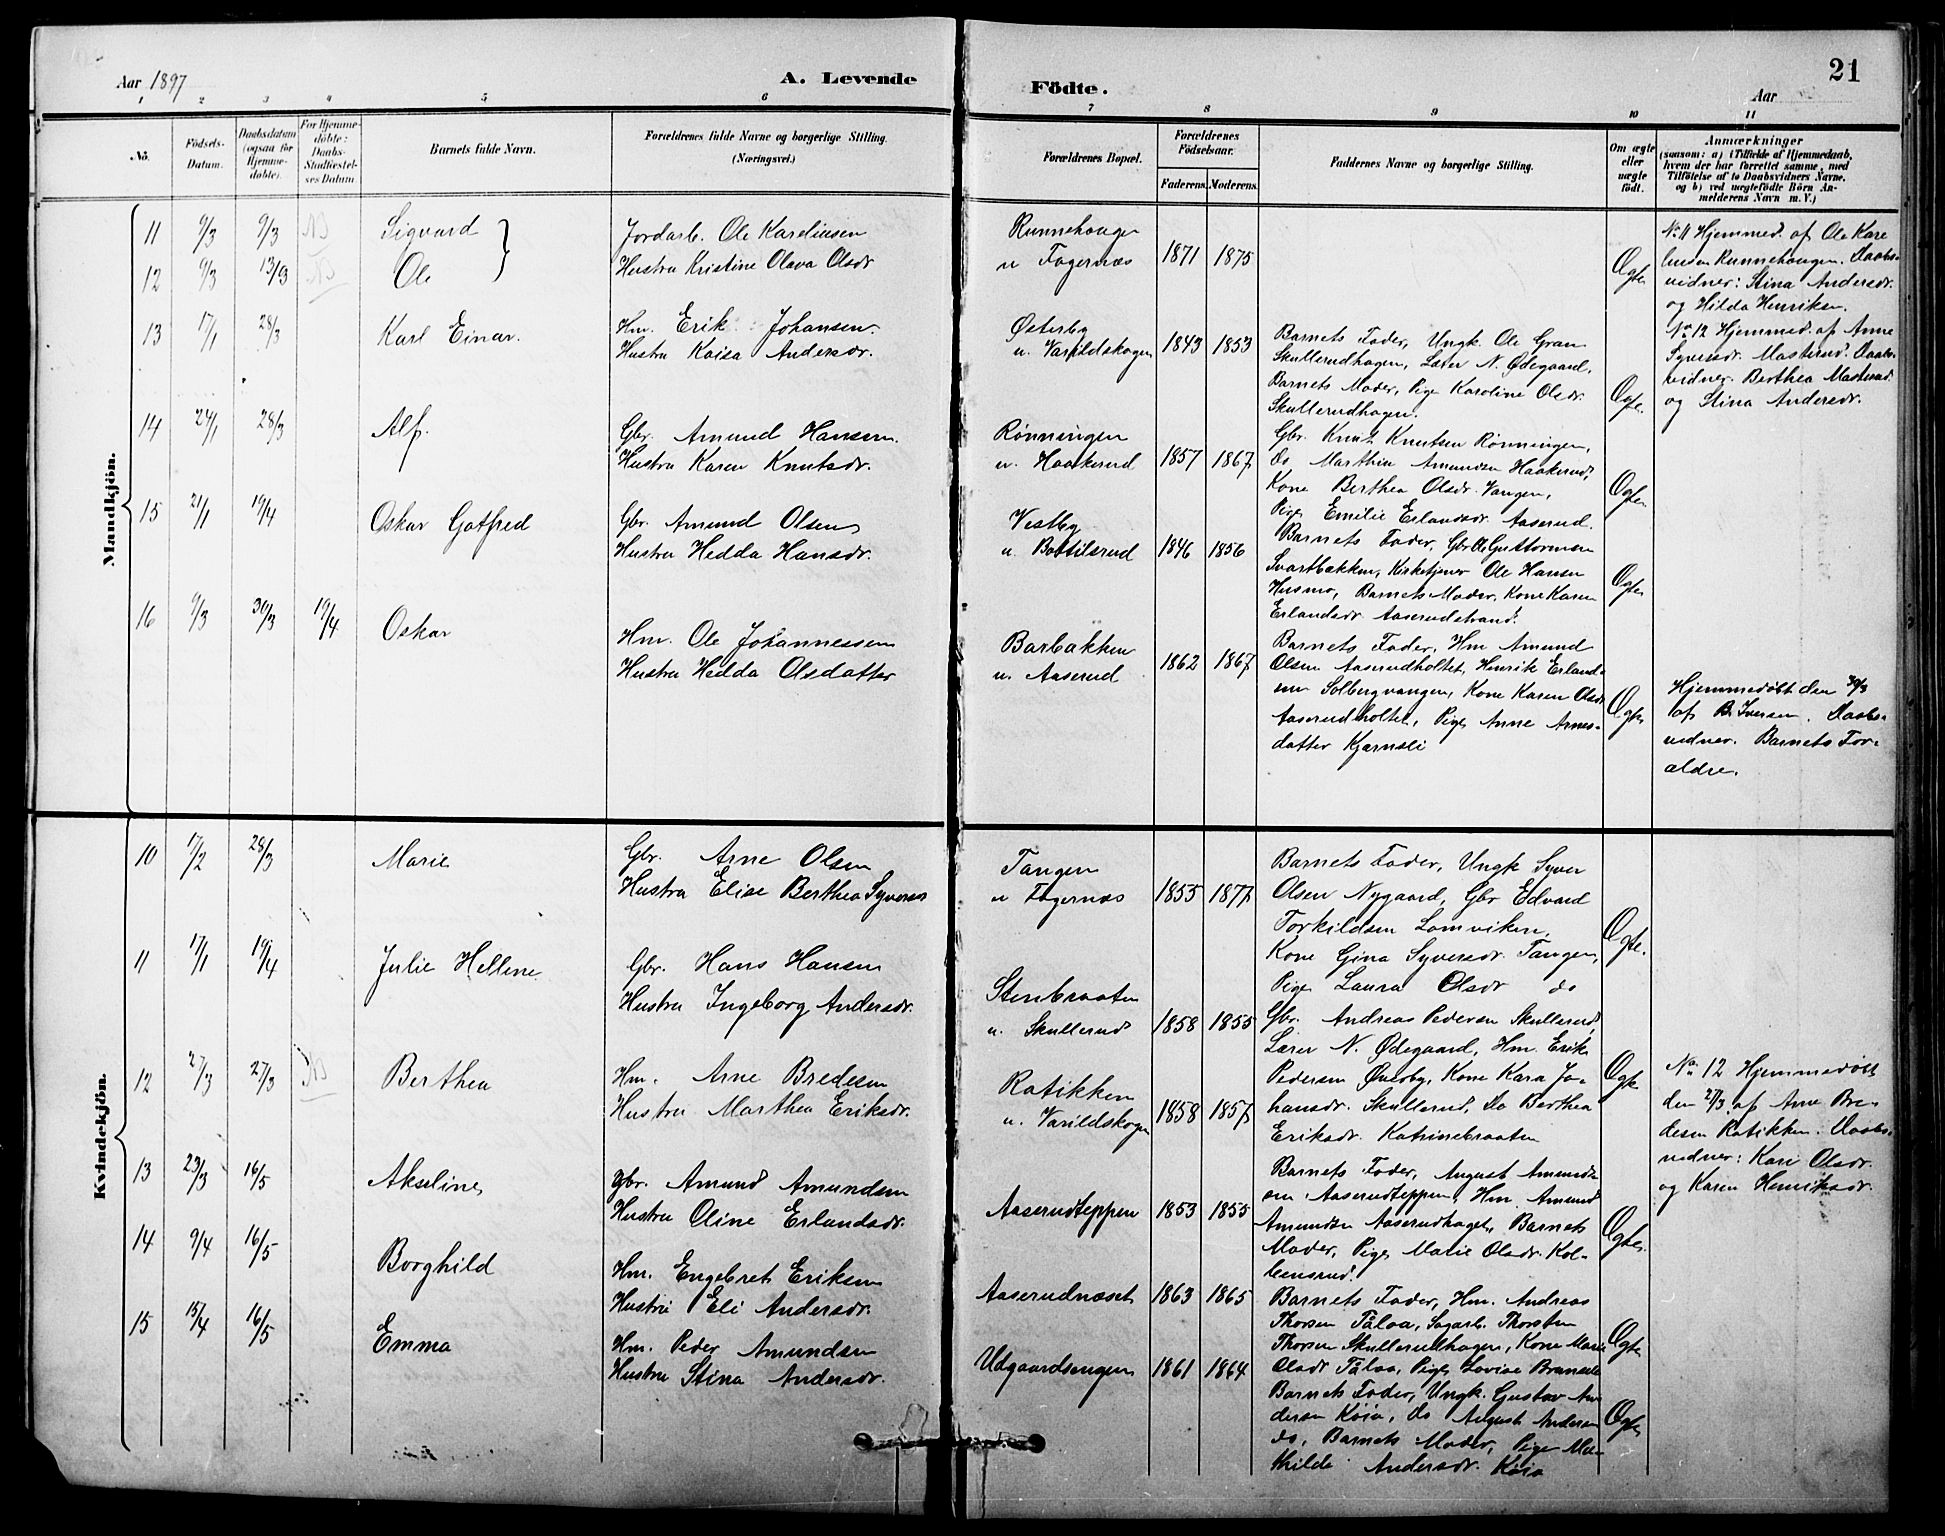 Aar 1897
A. Levende
Födte.
21
Aar
1 2 3 4 5 6 7 8 9 10 11
No.
Födsels-Datum.
Daabsdatum (ogsaa for Hjemme-döbte).
For Hjemme-döbte: Daabs-Stadfæstel-ses Datum
Barnets fulde Navn.
Forældrenes fulde Navne og borgerlige Stilling.
(Næringsvei.)
Forældrenes Bopæl.
Forældrenes Födselsaar.
Faderens. Moderens.
Faddernes Navne og borgerlige Stilling.
Om ægte eller uægte født.
Anmærkninger
(saasom: a) i Tilfælde af Hjemmedaab,
hvem der har forrettet samme, med
Tilföielse af to Daabsvidners Navne,
og b) ved uægtefødte Börn An-
melderens Navn m. V.)
Mandkjön.
11 9/3 9/3 NB Sigvard
Jordarb. Ole Kareliusen
Runnehaugen
12 9/3 13/3 NB Ole
Hustru Kristine Olava Olsdr
u Fagernæs 1871 1875
Ægte
No 11 Hjemmed. af Ole Kare
liusen Runnehaugen. Daabs-
vidner: Stina Andersdr.
og Hilda Henriksen.
13 17/1 28/3 Karl Einar.
Hm. Erik Johansen.
Hustru Kaisa Andersdr.
Østerby
u. Varildskogen 1843 1853
Barnets Fader, Ungk. Ole Gran
Skullerudhagen, Lærer N. Ødegaard,
Barnets Moder, Pige Karoline Olsdr.
Skullerudhagen.
Ægte.
No 12 Hjemmed. af Anne
Syversdr. Masterud. Daabs-
vidner. Berthea Masterud
og Stina Andersdr.
14 24/1 28/3 Alf.
Gbr. Amund Hansen.
Hustru Karen Knutsdr.
Rønningen
u. Haakerud 1857 1867
Gbr. Knut Knutsen Rønningen,
Do Marthin Amundsen Haakerud,
Kone Berthea Olsdr. Vangen,
Pige Emilie Erlandsdr. Aaserud.
Ægte
15 21/1 19/4 Oskar Gotfred
Gbr. Amund Olsen
Hustru Hedda Hansdr.
Vestby
u. Bottilsrud 1846 1856
Barnets Fader, Gbr. Ole Guttormsen
Svartbækken, Kirketjener Ole Hansen
Husmo, Barnets Moder, Kone Karen
Erlandsdr Aaserudstrand.
Ægte
16 9/3 30/3 19/4 Oskar
Hm. Ole Johannessen
Hustru Hedda Olsdatter
Barbakken
u. Aaserud 1862 1867
Barnets Fader, Hm Amund
Olsen Aaserudholtet, Henrik Erland-
sen Solbergvangen, Kone Karen Olsdr
Aaserudholtet, Pige Anne Arnes-
datter Kjærnsli
Ægte
Hjemmedøbt den 30/3
af B. Iversen. Daabs-
vidner. Barnets For-
ældre.
Kvindekjön.
10 17/2 28/3 Marie
Gbr. Arne Olsen
Hustru Elise Berthea Syversdr
Tangen
u Fagernæs 1853 1877
Barnets Fader, Ungk Syver
Olsen Nygaard, Gbr Edvard
Torkildsen Lomviken,
Kone Gina Syversdr. Tangen,
Pige Laura Olsdr do
Ægte.
11 17/1 19/4 Julie Hellene
Gbr. Hans Hansen
Hustru Ingeborg Andersdr.
Stenbraaten
u. Skullerud 1858 1855
Gbr. Andreas Pedersen Skullerud,
Lærer N. Ødegaard, Hm. Erik
Pedersen Øverby, Kone Kara Jo-
hansdr. Skullerud, Do Berthea
Eriksdr. Katrinebraaten
Ægte
12 27/3 27/3 NB Berthea
Hm. Arne Bredesen
Hustru Marthea Eriksdr.
Ratikken
u. Varildskogen 1858 1857
No 12 Hjemmedøbt
den 27/3 af Arne Bre-
desen Ratikken. Daabs-
vidner: Kari Olsdr.
og Karen Henriksdr.
13 23/3 16/5 Akseline
Gbr. Amund Amundsen
Hustru Oline Erlandsdr.
Aaserudteppen 1853 1855
Barnets Fader, August Amunds-
sen Aaserudteppen, Hm. Amund
Amundsen Aaserudhaget, Barnets
Moder, Pige Marie Olsdr. Kol-
bensrud.
Ægte.
14 9/4 16/5 Borghild
Hm. Engebret Eriksen
Hustru Eli Andersdr.
Aaserudnæset 1863 1865
Barnets Fader, Hm. Andreas
Thorsen Tålaa, Sagarb. Thorsten
Thorsen Skullerudhagen, Kone Marie
Olsdr Tålaa, Pige Lovise
Ægte
15 15/4 16/5 Emma
Hm. Peder Amundsen
Hustru Stina Andersdr.
Udgaardsengen 1861 1864
Barnets Fader, Ungk. Gustav An-
dersen Køia, Do August Andersen
do, Barnets Moder, Pige Mat-
hilde Andersdr. Køia
Ægte